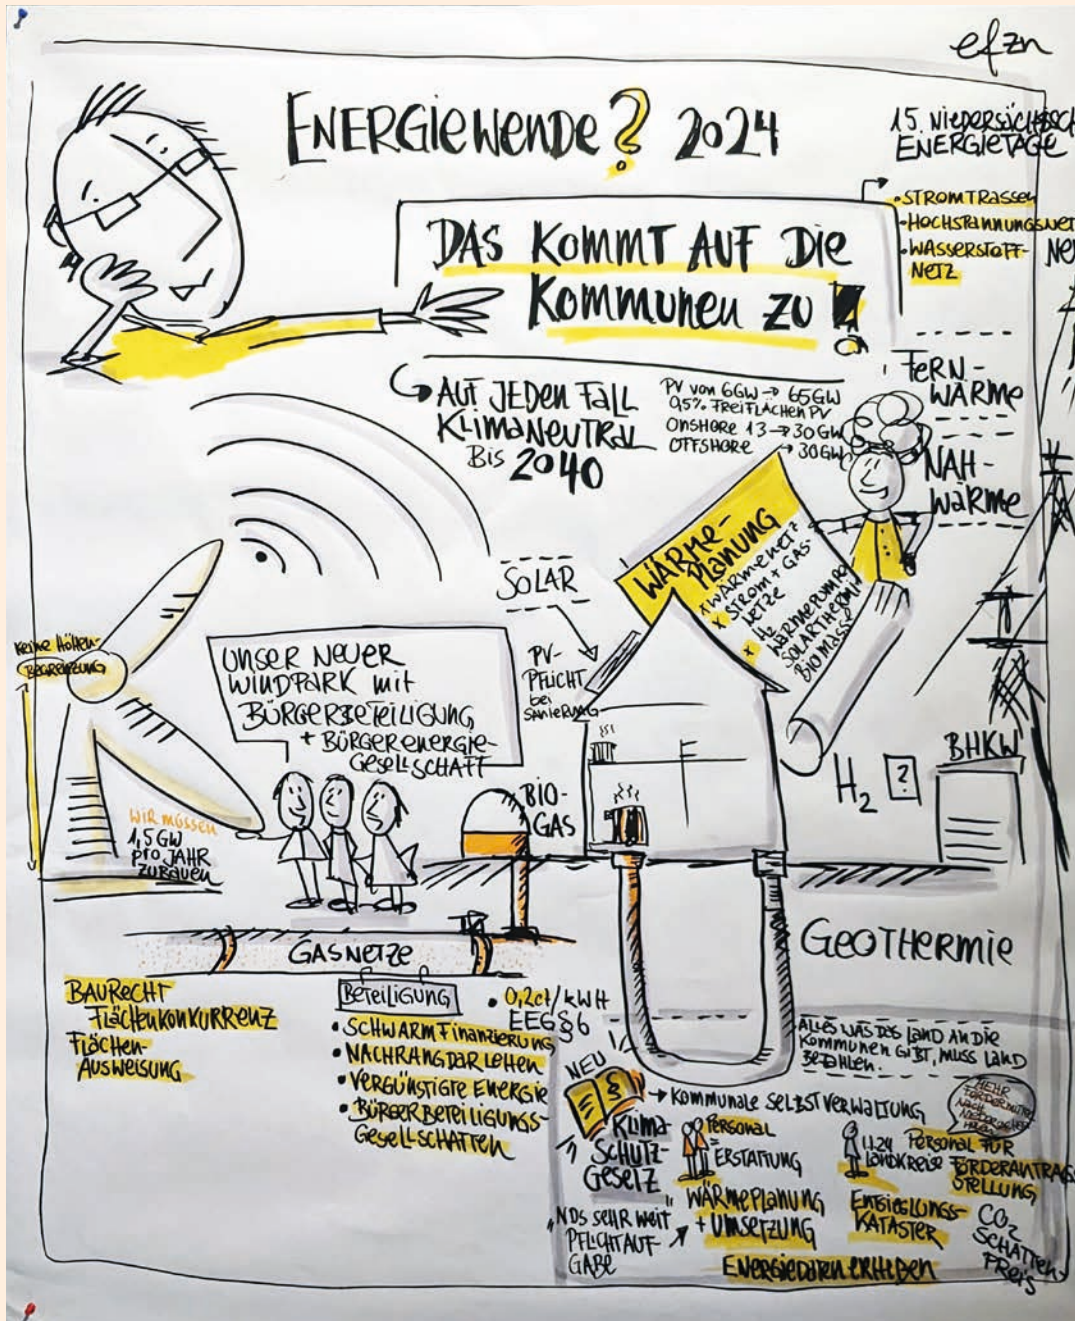 efzn
ENERGIEWENDE? 2024
15. NIEDERSÄCHSISCH
ENERGIETAGE
DAS KOMMT AUF DIE
KOMMUNEN ZU!
• STROMTRASSEN
• HOCHSPANNUNGSNET
• WASSERSTOFF-
NETZ
AUF JEDEN FALL
KLIMANEUTRAL
BIS 2040
PV VON 6GW → 65GW
0,5% FREIFLÄCHEN PV
ONSHORE 13 → 30 GW
OFFSHORE → 30GW
FERN-
WÄRME
NAH-
WÄRME
WÄRME-
PLANUNG
WÄRMENETZ
STROM + GAS-
NETZE
H₂
WÄRMEPUMPE
SOLARTHERMIE
BIOMASSE
SOLAR
PV-
PFLICHT
bei
SANIERUNG
KEINE HÖHEN-
BEGRENZUNG
UNSER NEUER
WINDPARK mit
BÜRGERBETEILIGUNG
+ BÜRGERENERGIE-
GESELLSCHAFT
WIR MÜSSEN
1,5 GW
PRO JAHR
ZUBAUEN
BIO-
GAS
H₂ ?
BHKW
GASNETZE
GEOTHERMIE
BAURECHT
FLÄCHENKONKURRENZ
FLÄCHEN-
AUSWEISUNG
BETEILIGUNG
• SCHWARMFINANZIERUNG
• NACHRANGDARLEHEN
• VERGÜNSTIGTE ENERGIE
• BÜRGERBETEILIGUNGS-
GESELLSCHAFTEN
• 0,2ct/kWH
EEG § 6
ALLES WAS DAS LAND AN DIE
KOMMUNEN GIBT, MUSS LAND
BEZAHLEN.
NEU
§
KLIMA-
SCHUTZ-
GESETZ
→ KOMMUNALE SELBSTVERWALTUNG
PERSONAL
=
ERSTATTUNG
1.1.24
LANDKREISE
PERSONAL FÜR
FÖRDERANTRAGS
STELLUNG
MEHR
FÖRDERMITTEL
NACH
NIEDERSACHSEN
HOLEN
"NDS SEHR WEIT"
PFLICHTAUF-
GABE
WÄRMEPLANUNG
+ UMSETZUNG
ENTSIEGLUNGS-
KATASTER
ENERGIEDATEN ERHEBEN
CO₂
SCHATTEN-
PREIS